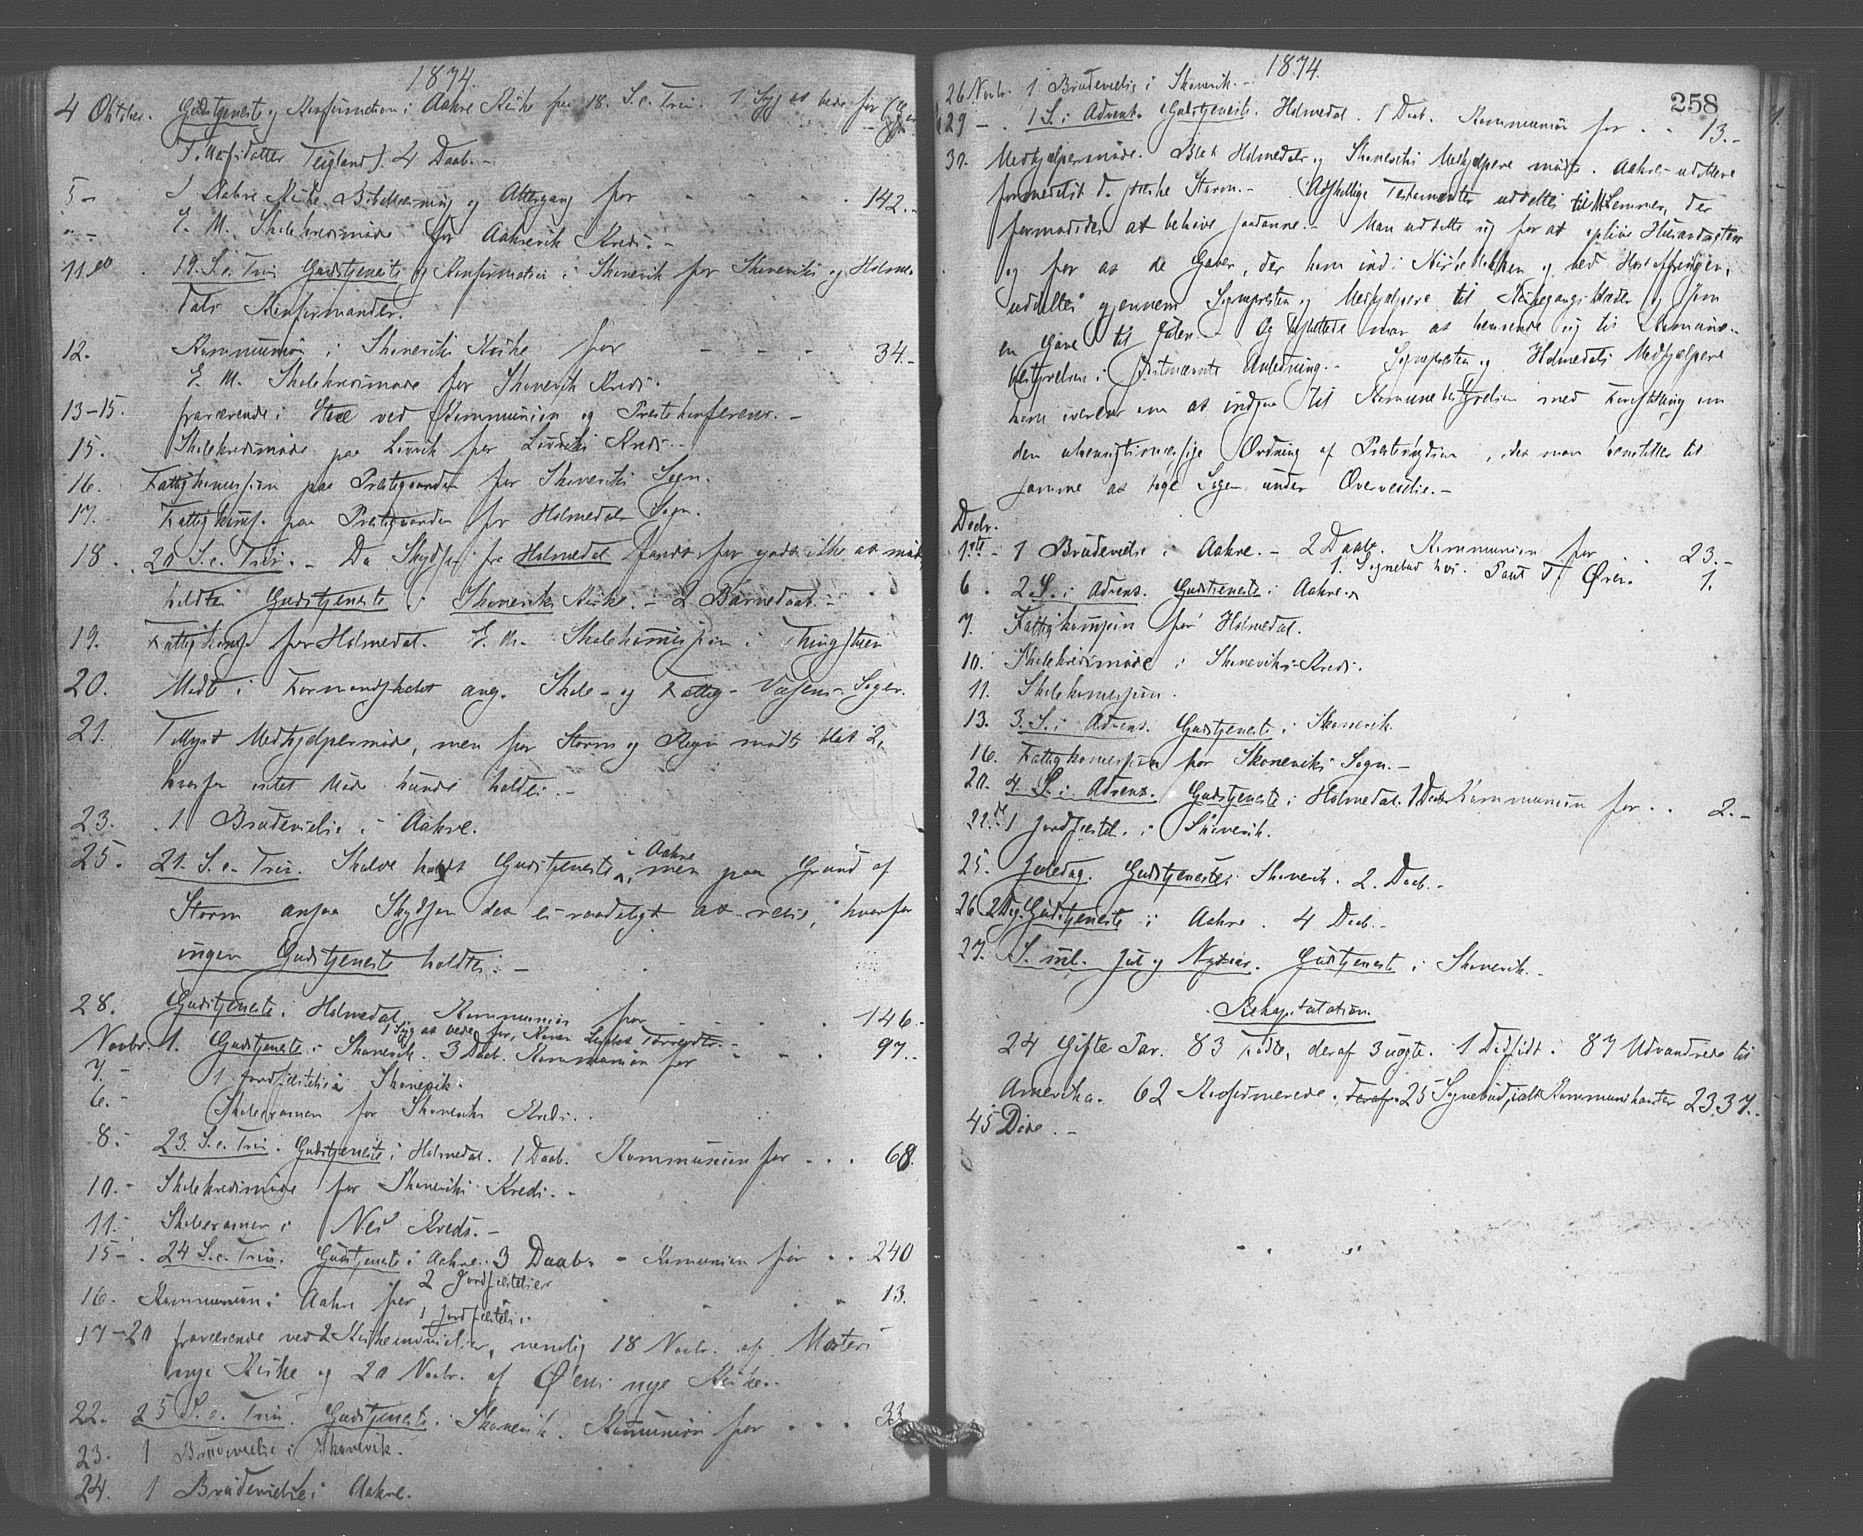 1874.
4 Oktober. Gudstjeneste og Konfirmation i Aakre Kirke paa 18. S. e. Trin. 1 Syg at bede for
Teigland). 4 Daab. –
5 – I Aakre Kirke Bibellæsning og Altergang for 142. –
" – E. M. Skolekredsmøde for Aakrevik Kreds. –
11. 19. S. e. Trin. Gudstjeneste og Konfirmation i Skonevik for Skoneviks og Holme-
dals Konfirmander.
12. Kommunion i Skoneviks Kirke for 34. –
E. M. Skolekredsmøde for Skonevik Kreds.
13–15. fraværende i ved Kommunion og Præstekonferens. –
15. Skolekredsmøde paa for Kreds. –
16. Fattigkommission paa Præstegaarden for Skoneviks Sogn.
17. Fattigkomis. paa Præstegaarden for Holmedals Sogn.
18. 20 S. e. Trin. – Da Skydsen fra Holmedal fandt for godt ikke at møde
holdtes Gudstjeneste i Skoneviks Kirke. – 2 Barnedaab. –
19. Fattigkomis for Holmedal. E. M. Skolekomission i Thingstuen
20. Møde i Formandskabet ang. Skole- og Fattig-Væsens-Sager.
21. Tillyst Medhjælpermøde, men for Storm og Regn mødte blot 2,
hvorfor intet Møde kunde holdes. –
23. 1 Brudevielse i Aakre.
25. 21. S. e. Trin. Skulde holdt Gudstjeneste i Aakre, men paa Grund af
Storm ansaa Skydsen det ei raadeligt at reise, hvorfor
ingen Gudstjeneste holdtes. –
28. Gudstjeneste i Holmedal. Kommunion for 146. –
1 Syg at bede for, Karen
Novbr. 1. Gudstjeneste i Skonevik. 3 Daab. Kommunion for 97. –
7. – 1 Jordfæstelse i Skonevik.
6. – Skoleexamen for Skoneviks Kreds.
8. – 23. S. e. Trin. Gudstjeneste i Holmedal. 1 Daab. Kommunion for 68.
10. – Skolekredsmøde for Skoneviks Kreds. –
11. – Skoleexamen i Nes Kreds. –
15 – . 24 S. e. Trin. Gudstjeneste i Aakre. 3 Daab. – Komunion for 240
2 Jordfæstelser
16. Kommunion i Aakre for 13.
1 Jordfæstelse.
17–20 fraværende ved 2 Kirkeindvielser, nemlig 18 Novbr. af Mosters
nye Kirke og 20 Novbr. af Ølens nye Kirke.
22. 25 S. e. Trin. Gudstjeneste i Skonevik. Komunion for 33
23. 1 Brudevielse i Skonevik.
24. 1 Brudevielse i Aakre.
1874.
258
26 Novbr. 1 Brudevielse i Skonevik. –
29 – . 1 S. i Advent. Gudstjeneste. Holmedal. 1 Daab. Kommunion for 13. –
30. Medhjælpermøde. Blot Holmedals og Skoneviks Medhjælpere mødte. Aakres udeblev
formedelst d. stærke Storm. – Adskillige Testamenter uddeltes til Lemmer, der
formodedes at behøve saadanne. – Man udtalte sig for at
og for at de Gaver, der kom ind i Kirkeblokken og ved Høstofferingen,
uddeltes gjennem Sognepresten og Medhjælpere til og som
en Gave til Julen. – Og besluttede man at henvende sig til Komune-
bestyrelsen i Anledning. – Sognepresten og Holmedals Medhjælpere
kom overens om at indgaa til Komunebestyrelsen med Forestilling om
den uhensigtsmæssige Ordning af , idet man henstiller til
samme at tage Sagen under Overveielse. –
Decbr.
1ste – 1 Brudevielse i Aakre. – 2 Daab. Kommunion for 23. –
1. Sognebud hos. T. 1.
6. 2 S. i Advent. Gudstjeneste i Aakre.
7. Fattigkomission for Holmedal.
10. Skolekredsmøde i Skoneviks Kreds.
11. Skolekomission.
13. 3. S. i Advent. Gudstjeneste i Skonevik.
16. Fattigkomission for Skoneviks Sogn. –
20. 4. S. i Advent. Gudstjeneste i Holmedal. 1 Daab Kommunion for 2. –
22. 1 Jordfæstel. i Skonevik.
25. Juledag. Gudstjeneste i Skonevik. 2. Daab. –
26 2 Dag. Gudstjeneste i Aakre. 4 Daab. –
27. S. ml. Jul og Nytaar. Gudstjeneste i Skonevik. –
Rekapitulation.
24 Gifte Par. 83 Fødte, deraf 3 uægte. 1 Dødfødt. 87 Udvandrede til
Amerika. 62 Konfirmerede. 25 Sognebud, ialt Kommunikanter 2337.
45 Døde. –